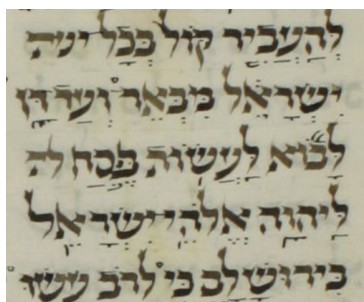 לְהַעֲבִיר קוֹל בְּכָל
יִשְׂרָאֵל מִבְּאֵר וְעַד דָּן
לָבוֹא לַעֲשׂוֹת פֶּסַח לה
לַיהוָה אֱלֹהֵי יִשְׂרָאֵל
בִּירוּשָׁלַ͏ִם כִּי לָרֹב עָשׂוּ